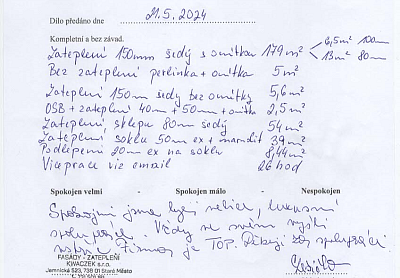 Dílo předáno dne 21.5.2024
Kompletní a bez závad.
Zateplení 150mm šedý s omítkou 179 m² < 6,5m² 100m
13m² 80mm
Bez zateplení perlinka + omítka 5 m²
Zateplení 150m šedy bez omítky 5,6 m²
OSB + zateplení 40m + 50mm + omítka 2,5 m²
Zateplení sklepu 80mm šedý 54 m²
Zateplení soklu 50m ex + marmolit 39 m²
Podlepení 20m ex na soklu 8,44 m²
Vícprace viz email 26 hod
Spokojen velmi - Spokojen málo - Nespokojen
Spokojeni jsme byli velice, luxusní
spolupráce. Vždy se mnou
Firma je TOP. Děkuji za spolupráci
FASÁDY - ZATEPLENÍ
KWACZEK s.r.o.
Jemnická 523, 738 01 Staré Město